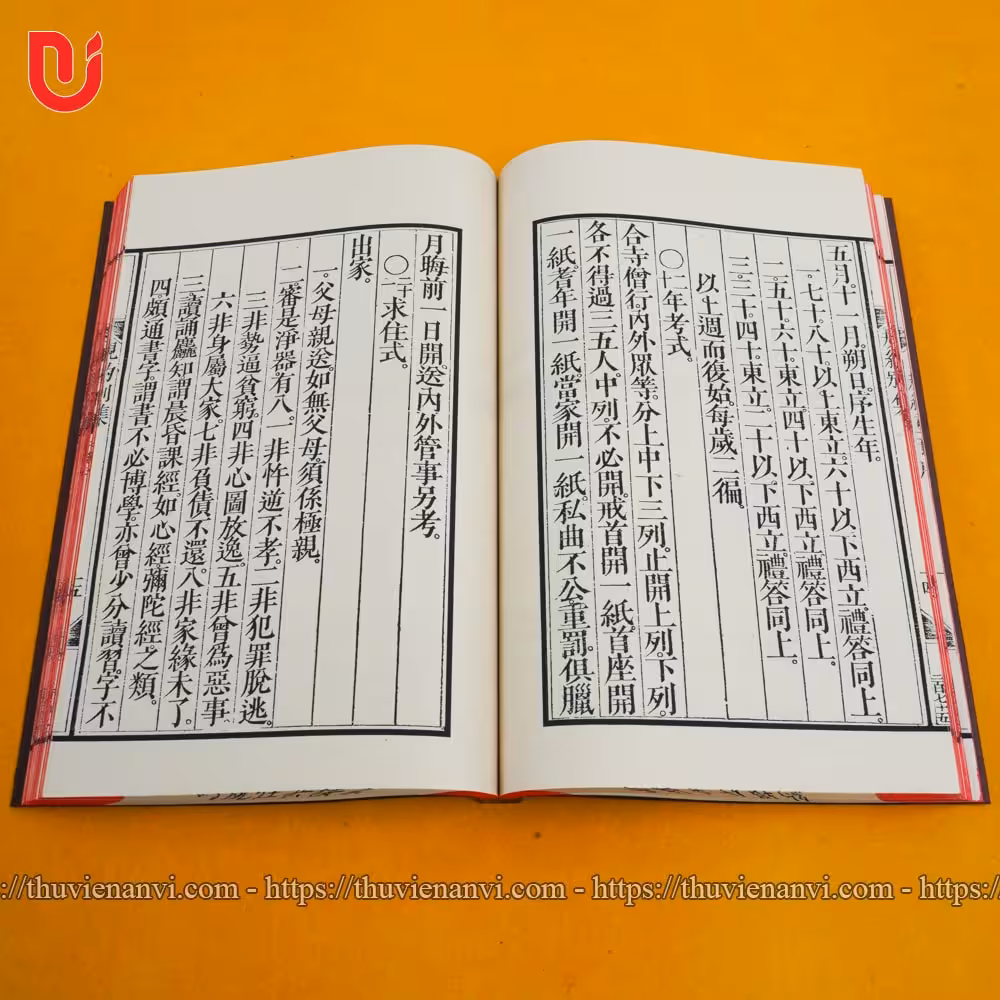 五月十一月朔日序生年。
一。七十八十以上東立。六十以下西立。禮答同上。
二。五十六十東立。四十以下西立。禮答同上。
三。三十四十東立。二十以下西立。禮答同上。
以上週而復始。每歲二徧。
〇十二年考式。
合寺僧行。內外眾等。分上中下三列。止開上列。下列
各不得過三五人。中列。不必開。戒首開一紙。首座開
一紙。耆年開一紙。當家開一紙。私曲不公。重罰。俱臘
月晦前一日開送。內外管事另考。
〇二十求住式。
出家。
一。父母親送。如無父母。須係極親。
二。審是淨器。有八。一非忤逆不孝。二非犯罪脫逃。
三非勢逼貧窮。四非心圖放逸。五非曾為惡事
六非身屬大家。七非負債不還。八非家緣未了。
三。讀誦麤知。謂晨昏課經。如心經彌陀經。之類。
四。頗通書字。謂書不必博學。亦曾少分讀習。字不
://thuvienanvi.com - https://thuvienanvi.com - https://thuvienanvi.com - https:/